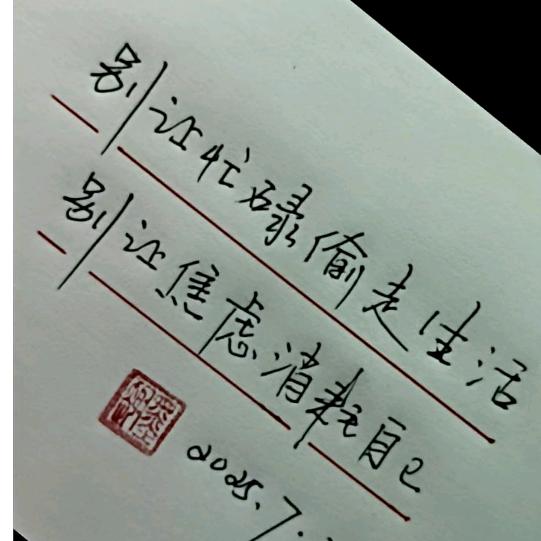 别让忙碌偷走生活
别让焦虑消耗自己
2025.7.